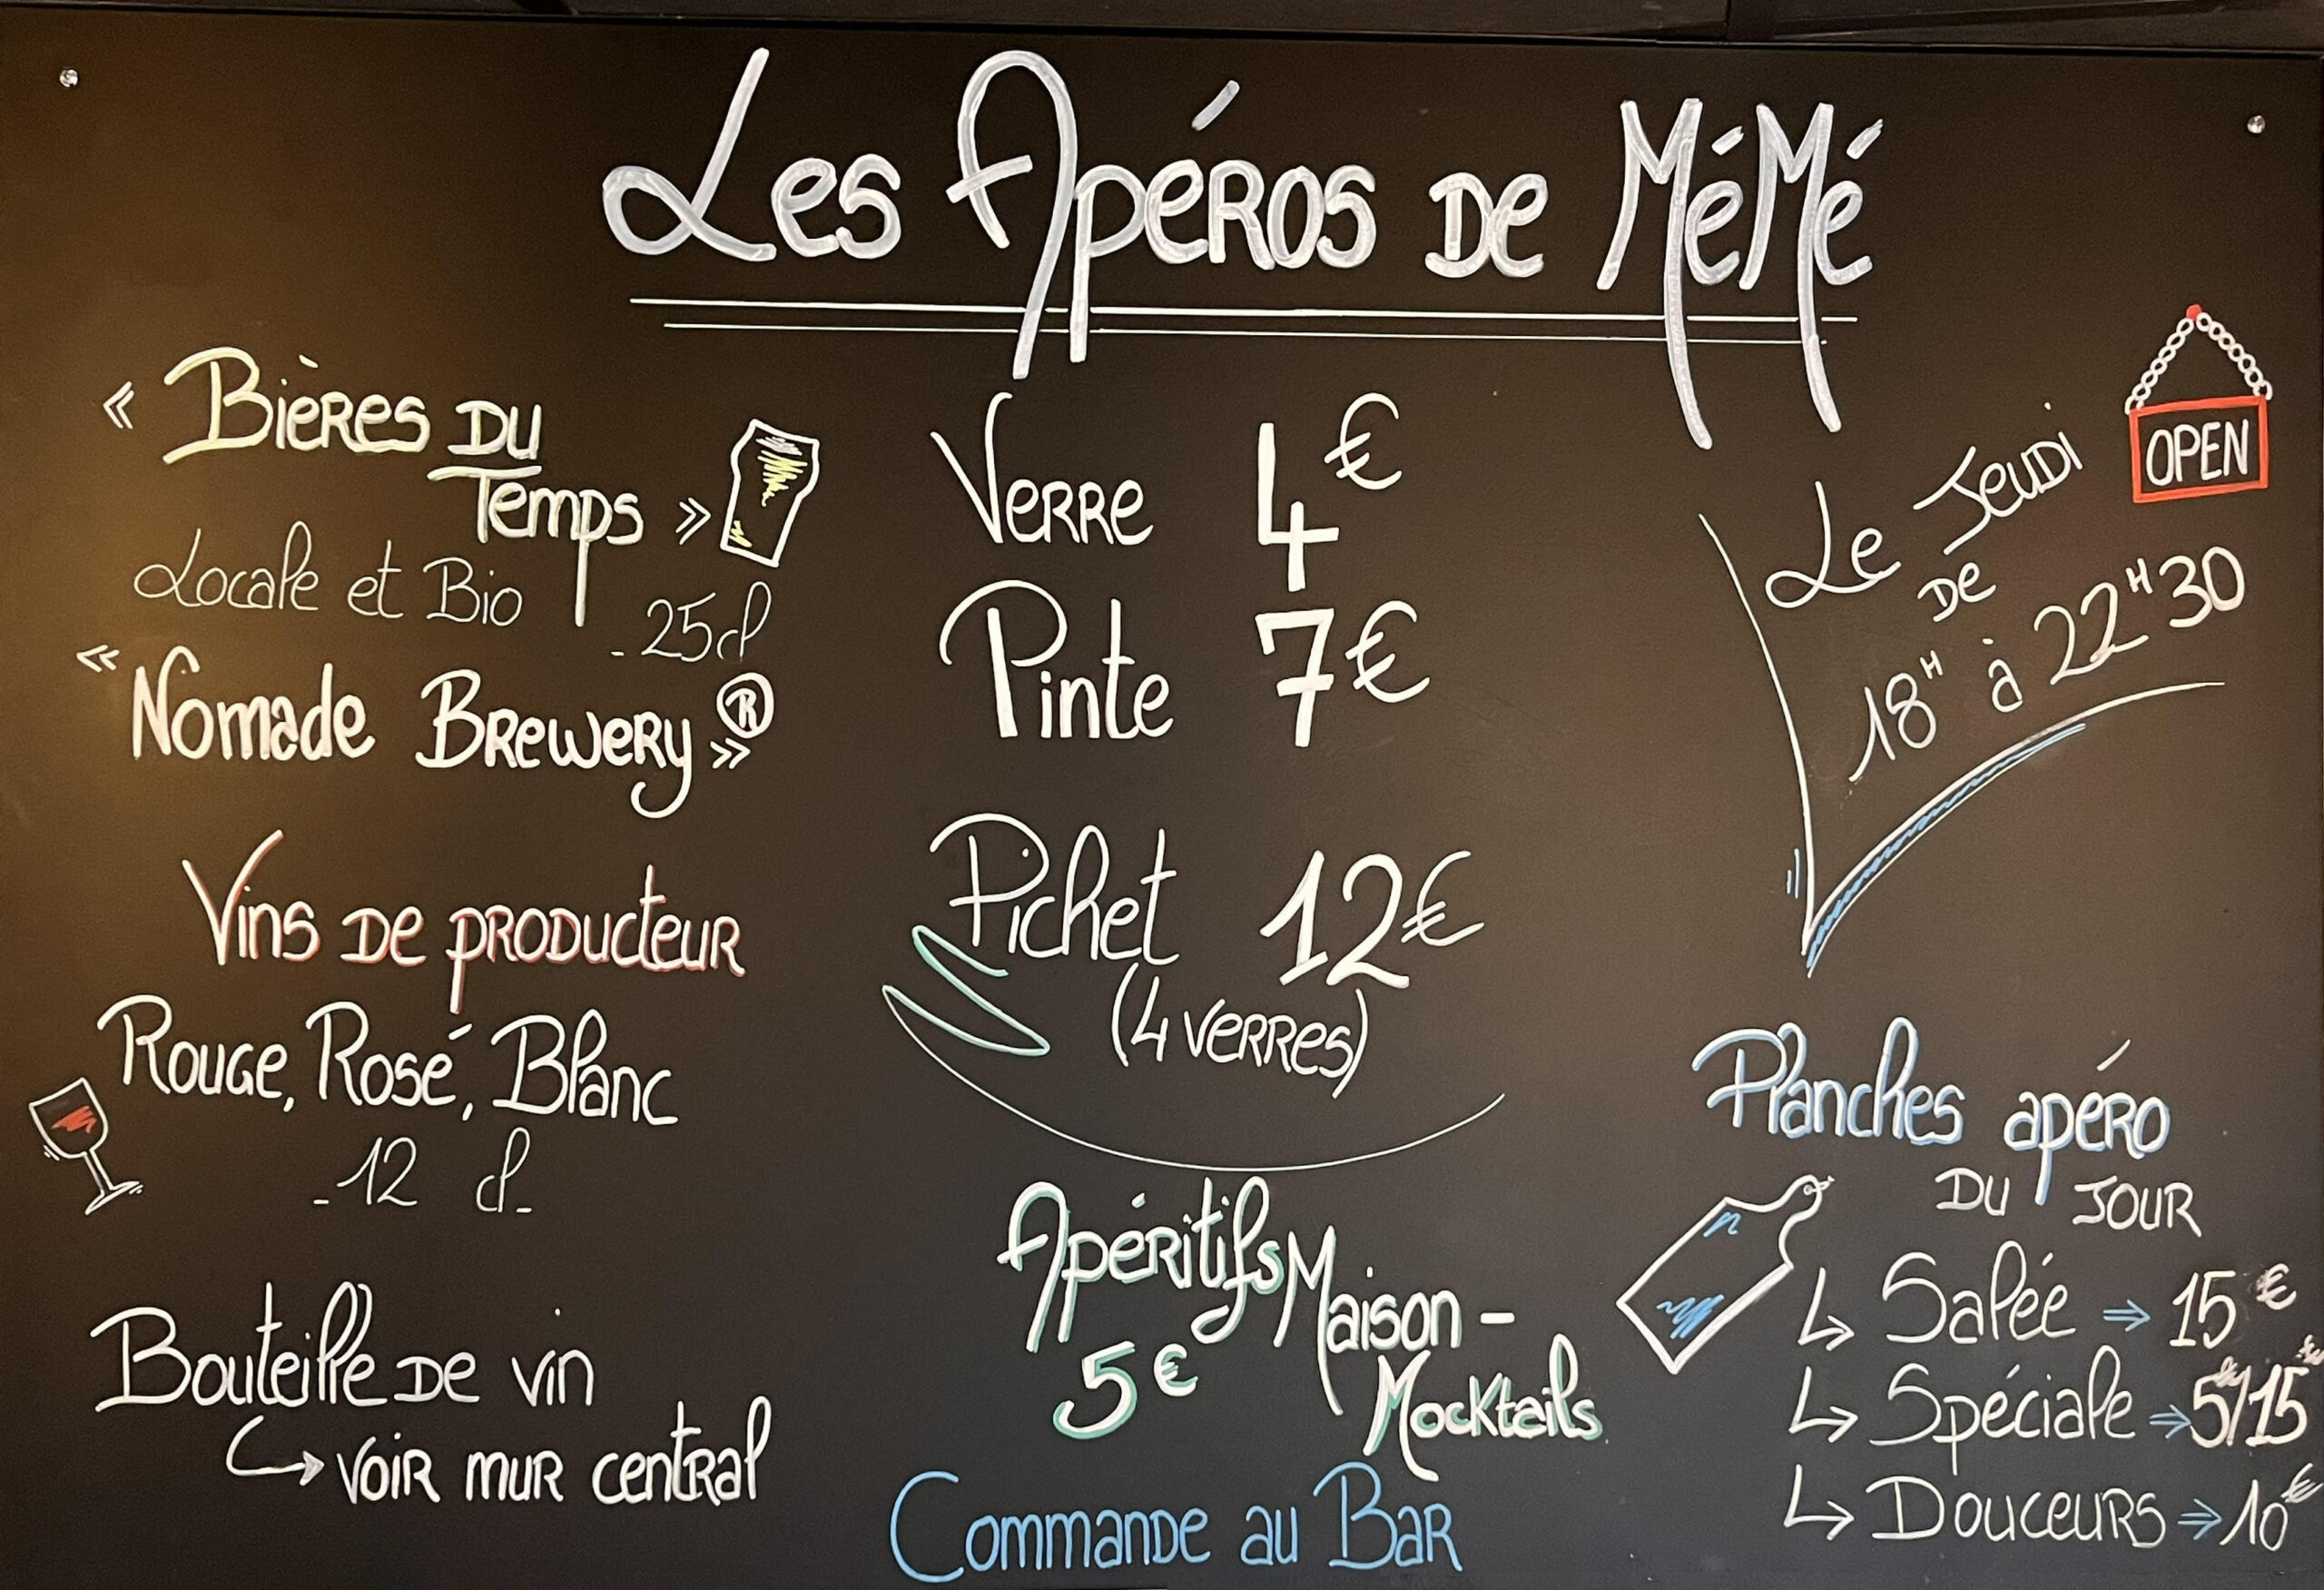 Les Apéros de MéMé
« Bières du
Temps »
Locale et Bio
- 25cl
« Nomade Brewery ® »
Vins de producteur
Rouge, Rosé, Blanc
- 12 cl -
Bouteille de vin
↳ voir mur central
Verre 4€
Pinte 7€
Pichet 12€
(4 verres)
Apéritifs Maison -
5€ Mocktails
Commande au Bar
OPEN
Le Jeudi
de
18H à 22H30
Planches apéro
du jour
↳ Salée ⇒ 15€
↳ Spéciale ⇒ 5€/15€
↳ Douceurs ⇒ 10€